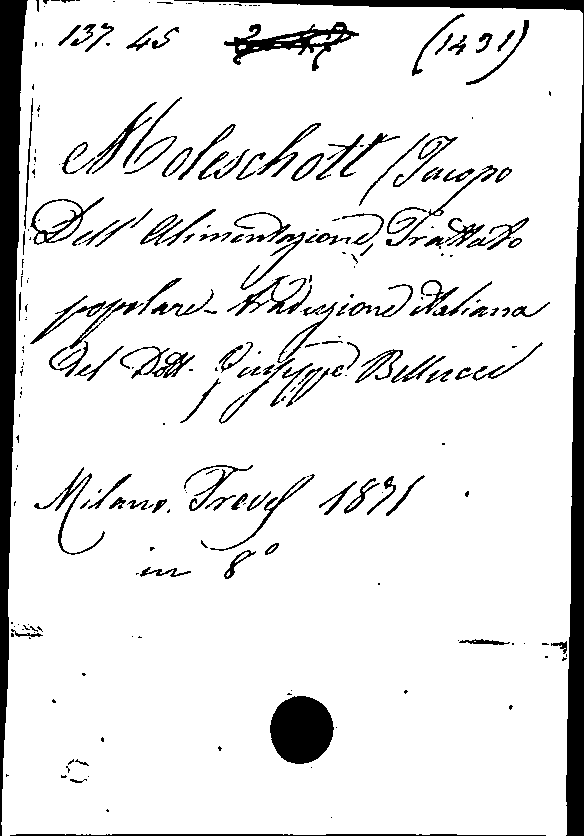 137. 45 (1491)
Moleschott (Jacopo
Dell' Alimentazione, Trattato
popolare - traduzione italiana
del Dott. Giuseppe Bellucci
Milano. Treves 1871
in 8°